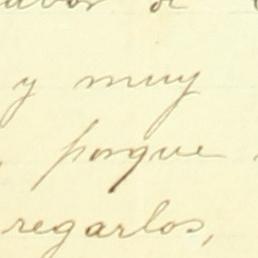 y muy
porque
regarlos,